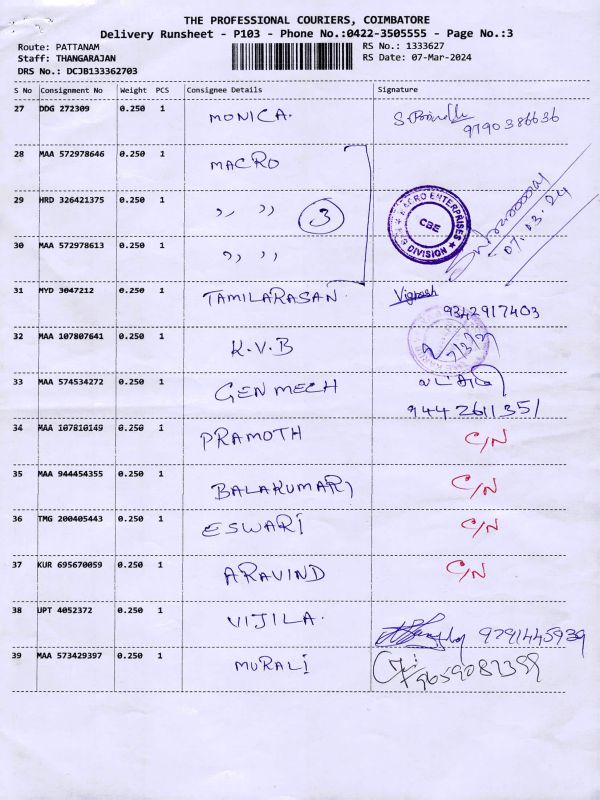 THE PROFESSIONAL COURIERS, COIMBATORE
Delivery Runsheet - P103 - Phone No.:0422-3505555 - Page No.:3
Route: PATTANAM
RS No.: 1333627
Staff: THANGARAJAN
RS Date: 07-Mar-2024
DRS No.: DCJB133362703
S No Consignment No Weight PCS Consignee Details Signature
27 DDG 272309 0.250 1 MONICA. 9790386636
28 MAA 572978646 0.250 1 MACRO
29 HRD 326421375 0.250 1 ,, ,, 3
MACRO ENTERPRISES CBE DIVISION
07.03.24
30 MAA 572978613 0.250 1 ,, ,,
31 MYD 3047212 0.250 1 TAMILARASAN. Vignesh
9342917403
32 MAA 107807641 0.250 1 K.V.B
33 MAA 574534272 0.250 1 GENMECH
9442611351
34 MAA 107810149 1 0.250 PRAMOTH C/N
35 MAA 944454355 0.250 1 BALAKUMARI C/N
36 TMG 200405443 0.250 1 ESWARI C/N
37 KUR 695670059 0.250 1 ARAVIND C/N
38 UPT 4052372 0.250 1 VIJILA. 9791445939
39 MAA 573429397 0.250 1 MURALI 9659087399